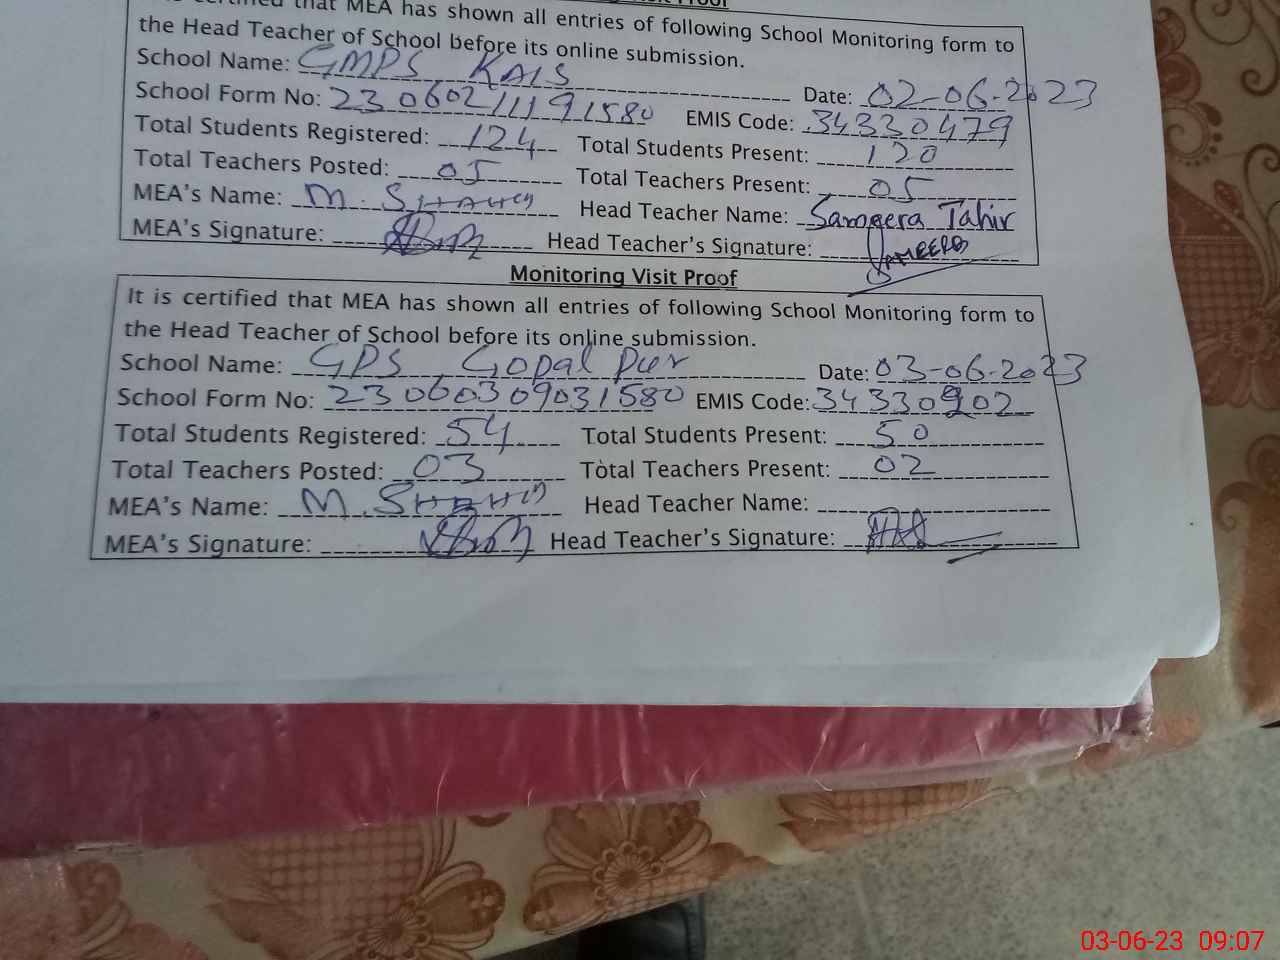 Visit Proof
certified that MEA has shown all entries of following School Monitoring form to
the Head Teacher of School before its online submission.
School Name: GMPS KAIS Date: 02-06-2023
School Form No: 23060211191580 EMIS Code: 34330479
Total Students Registered: 124 Total Students Present: 120
Total Teachers Posted: 05 Total Teachers Present: 05
MEA's Name: M. Head Teacher Name: Sameera Tahir
MEA's Signature: Head Teacher's Signature:
Monitoring Visit Proof
It is certified that MEA has shown all entries of following School Monitoring form to
the Head Teacher of School before its online submission.
School Name: GPS Gopal Pur Date: 03-06-2023
School Form No: 23060309031580 EMIS Code: 34330902
Total Students Registered: 54 Total Students Present: 50
Total Teachers Posted: 03 Total Teachers Present: 02
MEA's Name: M. Head Teacher Name:
MEA's Signature: Head Teacher's Signature:
03-06-23 09:07